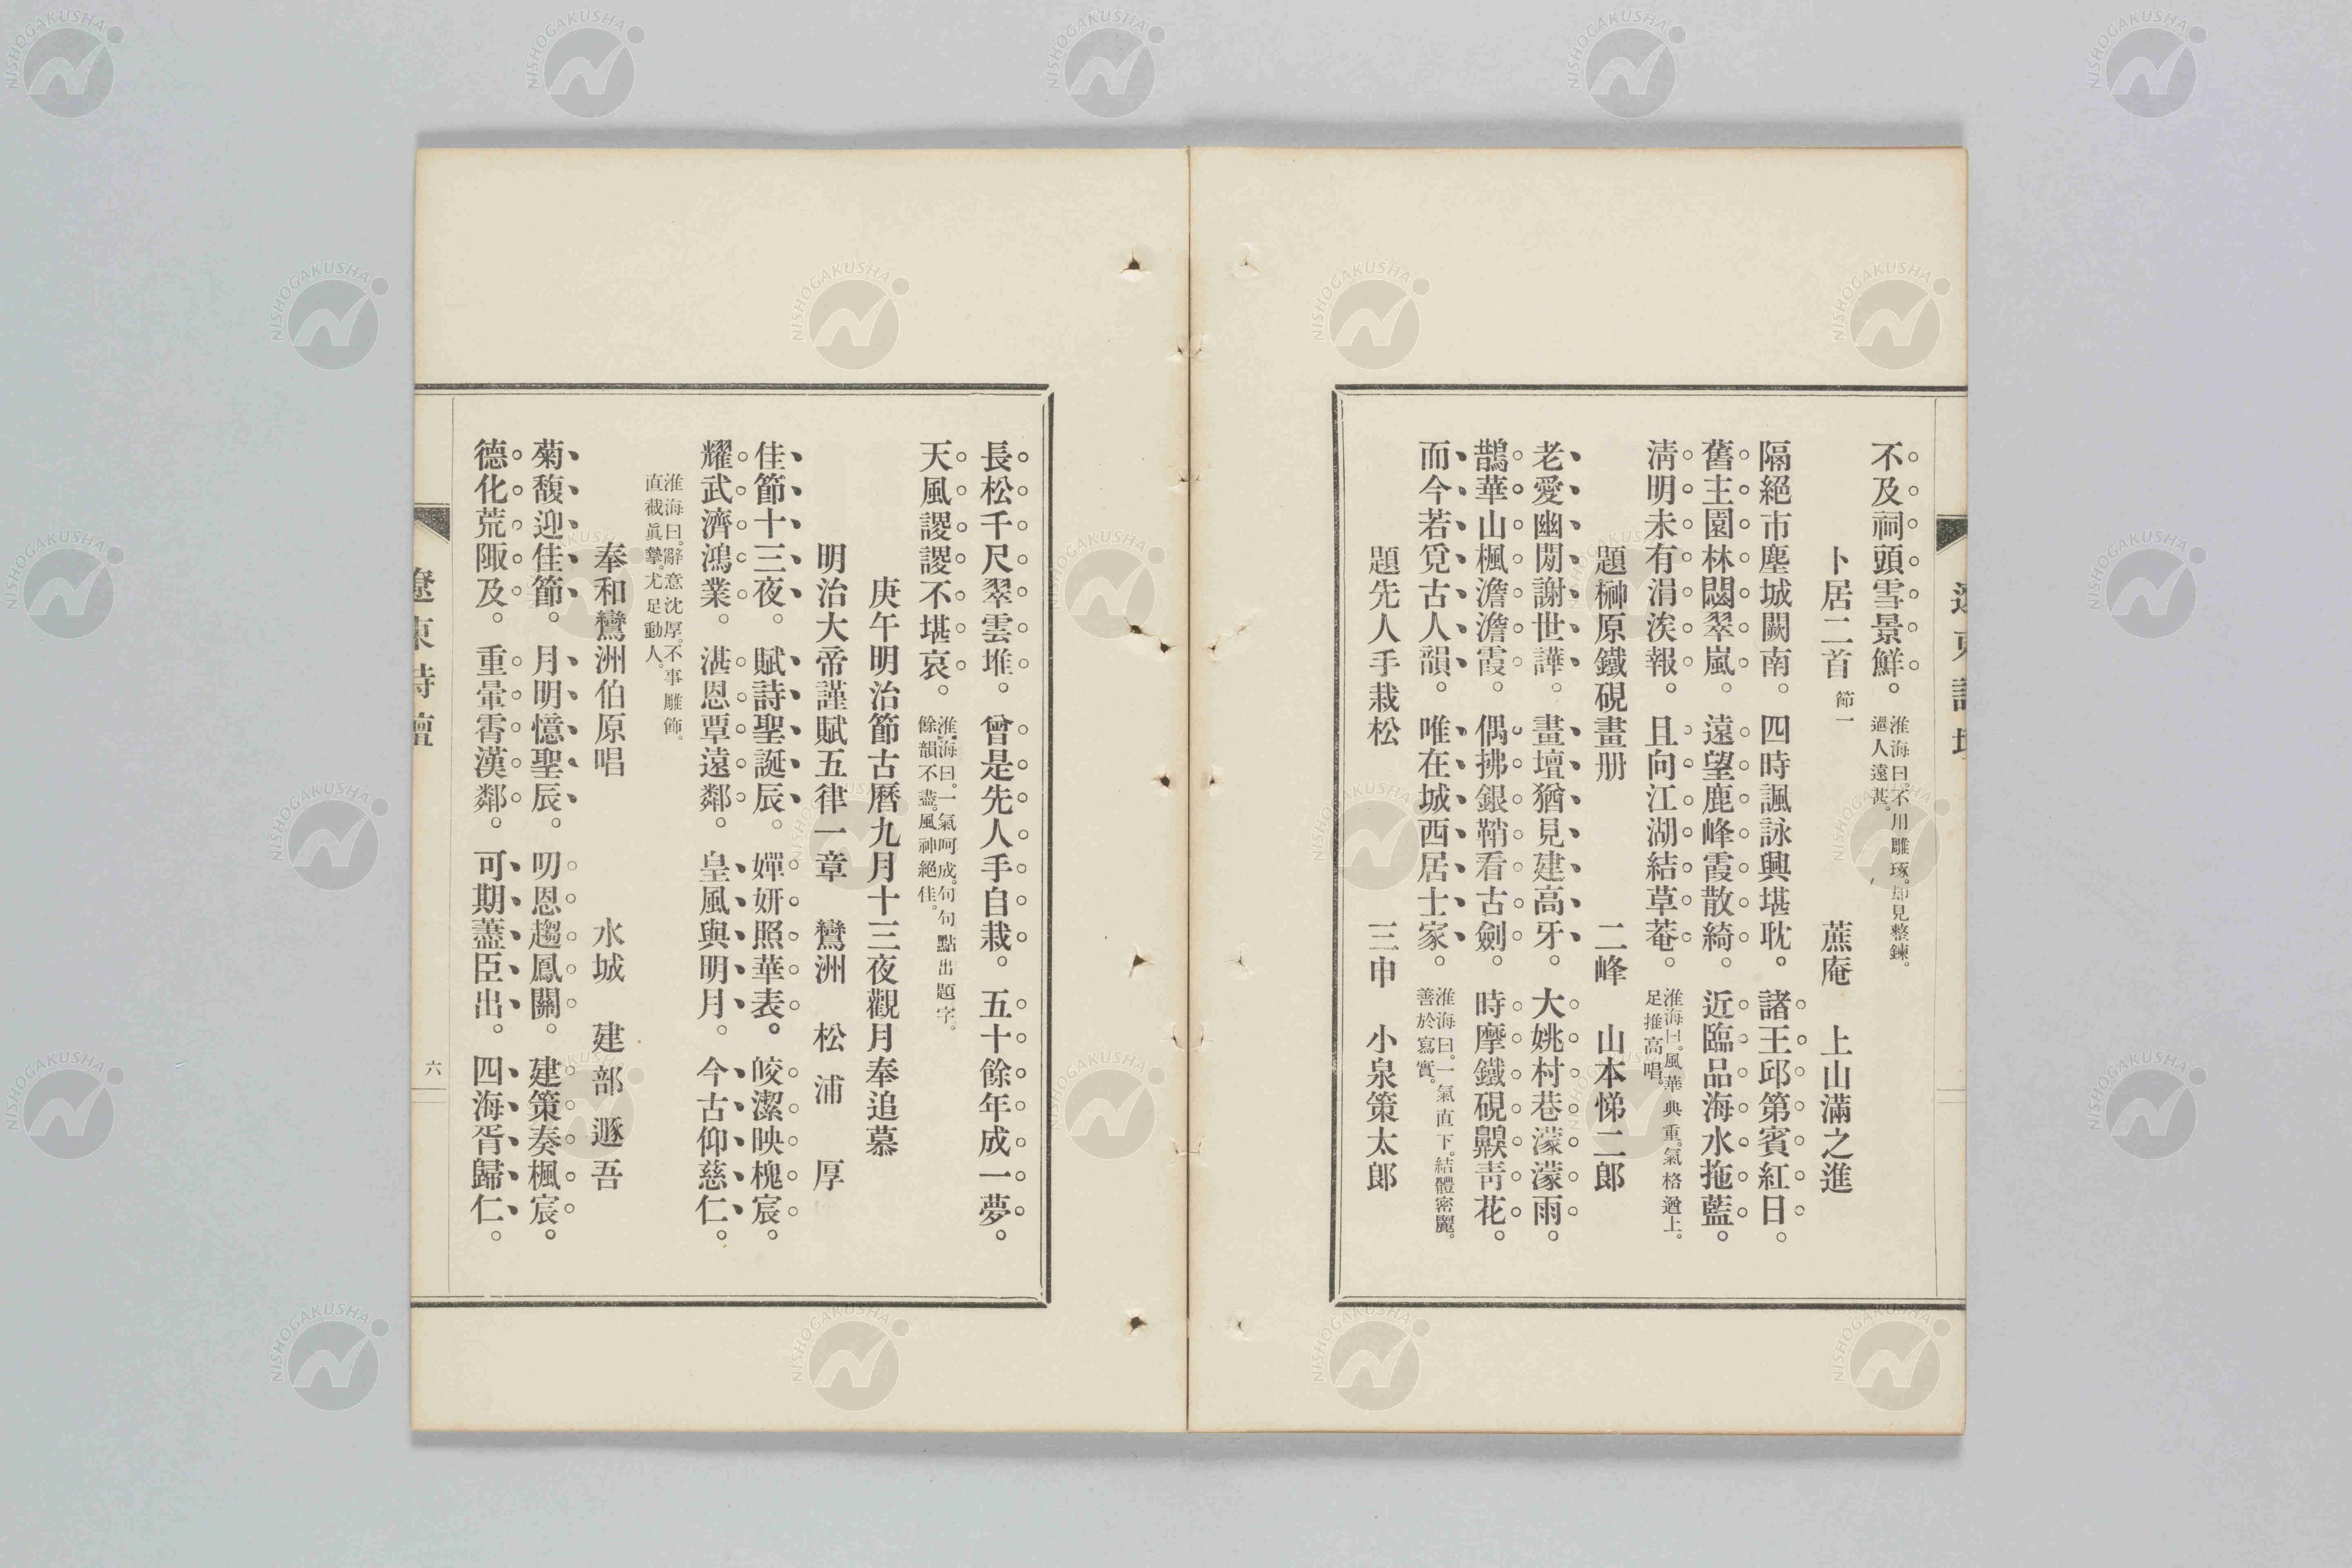 不及祠頭雪景鮮。淮海曰。不用雕琢。却見整鍊。
逼人遠甚。
卜居二首 節一 蔗庵 上山滿之進
隔絕市塵城闕南。四時諷詠興堪耽。諸王邱第賓紅日。
舊主園林閟翠嵐。遠望鹿峰霞散綺。近臨品海水拖藍。
淸明未有涓涘報。且向江湖結草菴。淮海曰。風華典重。氣格遒上。
足推高唱。
題榊原鐵硯畫册 二峰 山本悌二郎
老愛幽閒謝世譁。畫壇猶見建高牙。大姚村巷濛濛雨。
鵲華山楓澹澹霞。偶拂銀鞘看古劍。時摩鐵硯鼿靑花。
而今若覓古人韻。唯在城西居士家。淮海曰。一氣直下。結體密麗。
善於寫實。
題先人手栽松 三申 小泉策太郎
長松千尺翠雲堆。曾是先人手自栽。五十餘年成一夢。
天風謖謖不堪哀。淮海曰。一氣呵成。句句點出題字。
餘韻不盡。風神絕佳。
庚午明治節古曆九月十三夜觀月奉追慕
明治大帝謹賦五律一章 鸞洲 松浦厚
佳節十三夜。賦詩聖誕辰。嬋妍照華表。皎潔映槐宸。
耀武濟鴻業。湛恩覃遠鄰。皇風與明月。今古仰慈仁。
淮海曰。辭意沈厚。不事雕飾。
直截眞摯。尤足動人。
奉和鸞洲伯原唱 水城 建部遯吾
菊馥迎佳節。月明憶聖辰。叨恩趨鳳闕。建策奏楓宸。
德化荒陬及。重暈霄漢鄰。可期藎臣出。四海胥歸仁。
遼東詩壇
六